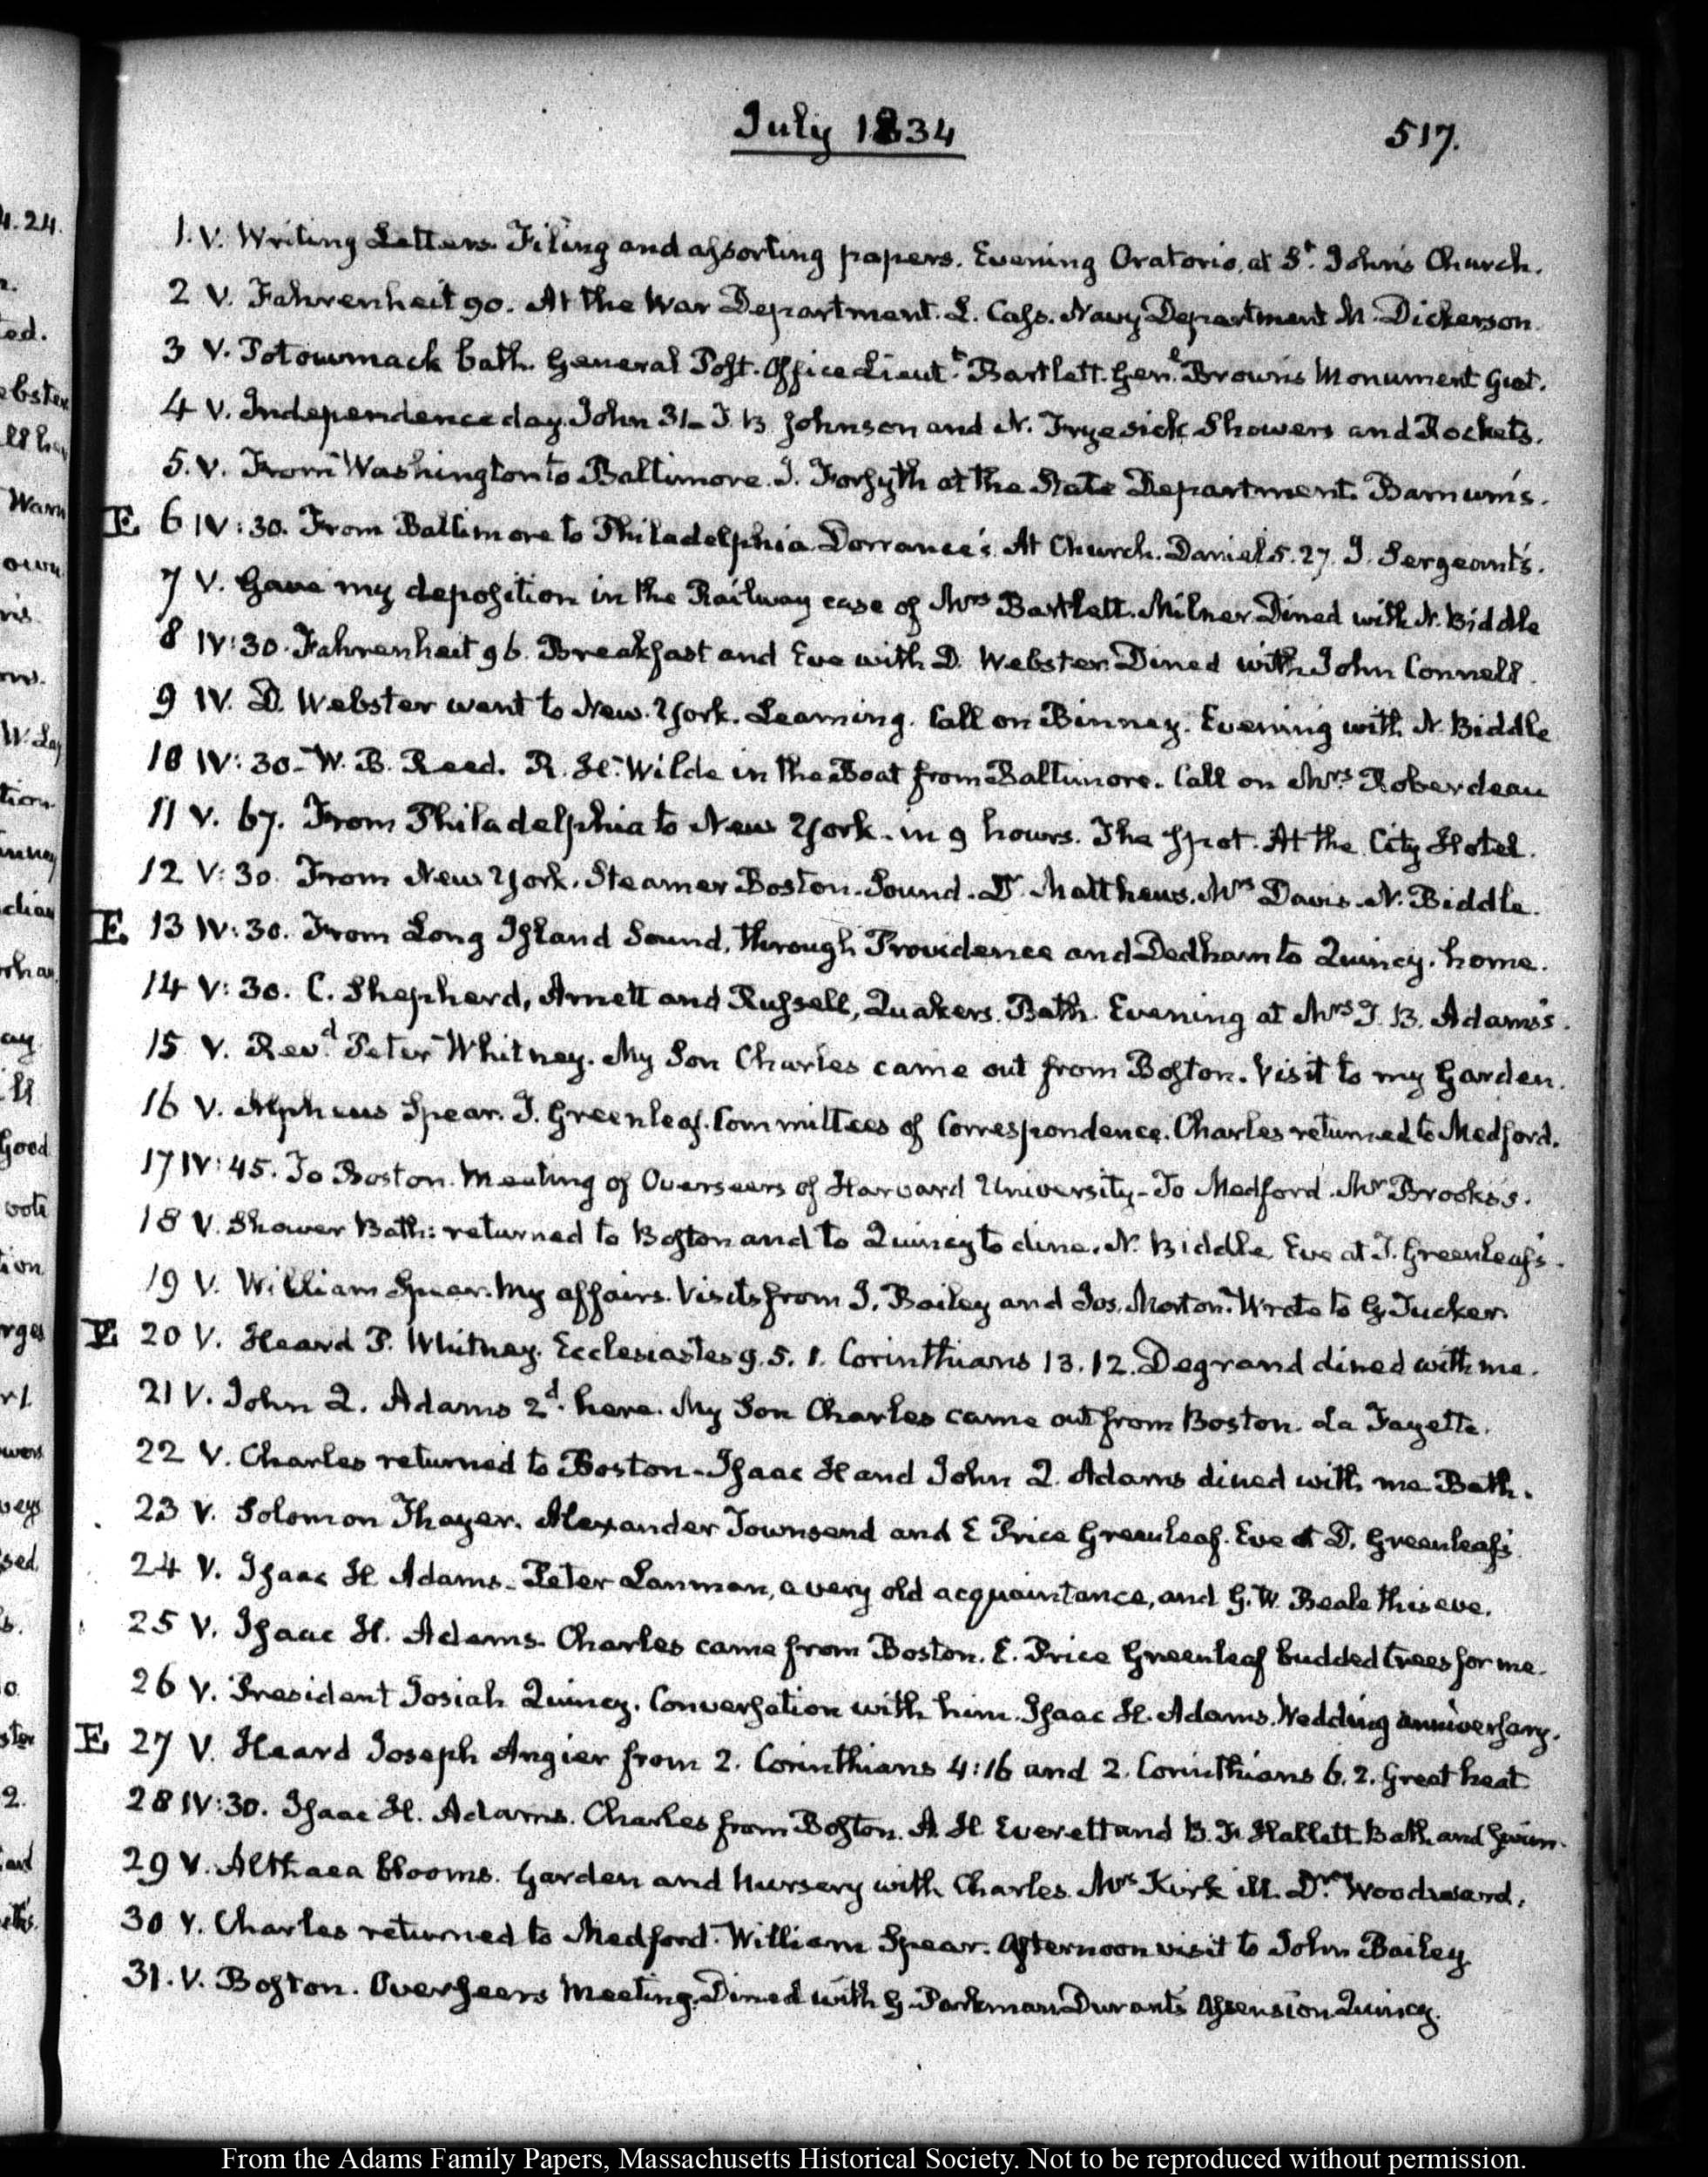 July 1834
517.
1. V. Writing Letters. Filing and assorting papers. Evening Oratorio, at St. John's Church.
2 V. Fahrenheit 90. At the War Department. L. Cass. Navy Department M. Dickerson.
3 V. Potowmack bath. General Post-Office Lieutt. Bartlett. Genl. Brown's Monument
4 V. Independence day. John 31_ T. B. Johnson and N. Frye sick Showers and Rockets.
5. V. From Washington to Baltimore. J. Forsyth at the State Department. Barnum's.
E 6 IV:30. From Baltimore to Philadelphia Dorrance's. At Church. Daniel 5.27. J. Sergeant's.
7 V. Gave my deposition in the Railway case of Mrs Bartlett. Milner. Dined with N. Biddle
8 IV:30. Fahrenheit 96. Breakfast and Eve with D. Webster. Dined with John Connell.
9 IV. D. Webster went to New-York. Leaming. Call on Binney. Evening with N. Biddle
10 IV:30- W. B. Reed. R. H. Wilde in the Boat from Baltimore. Call on Mrs. Roberdeau
11 V. 67. From Philadelphia to New York- in 9 hours. The Spot. At the City Hotel.
12 V:30. From New York. Steamer Boston. Sound. Dr Matthews. Mrs Davis. N. Biddle.
E. 13 IV:30. From Long Island Sound, through Providence and Dedham to Quincy. home.
14 V:30. C. Shepherd, Arnett and Russell, Quakers. Bath. Evening at Mrs T. B. Adams's.
15 V. Revd. Peter Whitney. My Son Charles came out from Boston. Visit to my Garden.
16 V. Alpheus Spear. T. Greenleaf. Committees of Correspondence. Charles returned to Medford.
17 IV:45. To Boston. Meeting of Overseers of Harvard University- To Medford. Mr Brooks's.
18 V. Shower Bath: returned to Boston and to Quincy to dine. N. Biddle. Eve at T. Greenleaf's.
19 V. William Spear. My affairs. Visits from J. Bailey and Jos. Morton. Wrote to G. Tucker.
E 20 V. Heard P. Whitney. Ecclesiastes 9.5. 1. Corinthians 13.12. Degrand dined with me.
21 V. John Q. Adams 2d. here. My Son Charles came out from Boston. La Fayette.
22 V. Charles returned to Boston- Isaac H and John Q. Adams dined with me. Bath.
23 V. Solomon Thayer. Alexander Townsend and E Price Greenleaf. Eve at D. Greenleaf's
24 V. Isaac H Adams- Peter Lanman, a very old acquaintance, and G. W. Beale this eve.
25 V. Isaac H. Adams. Charles came from Boston. E. Price Greenleaf budded trees for me.
26 V. President Josiah Quincy. Conversation with him. Isaac H. Adams. Wedding anniversary.
E 27 V. Heard Joseph Angier from 2. Corinthians 4:16 and 2. Corinthians 6.2. Great heat
28 IV:30. Isaac H. Adams. Charles from Boston. A. H. Everett and B. F. Hallett. Bath and swim.
29 V. Althaea blooms. Garden and Nursery with Charles. Mrs Kirk ill. Dr. Woodward.
30 V. Charles returned to Medford. William Spear. Afternoon visit to John Bailey
31. V. Boston. Overseers Meeting. Dined with G. Parkman Durant's Assension Quincy.
From the Adams Family Papers, Massachusetts Historical Society. Not to be reproduced without permission.